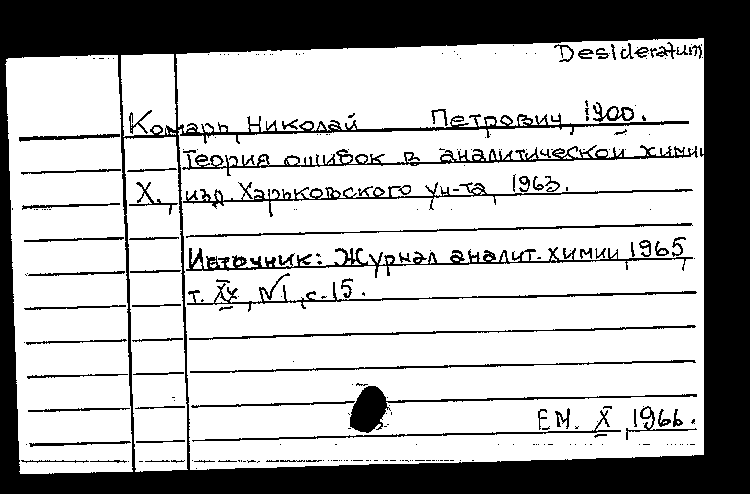 Desideratum
Комарь, Николай Петрович, 1900.
Теория ошибок в аналитической химии
Х., изд. Харьковского ун-та, 1963.
Источник: Журнал аналит. химии, 1965,
т. XX, N1, с. 15.
ЕМ. X, 1966.